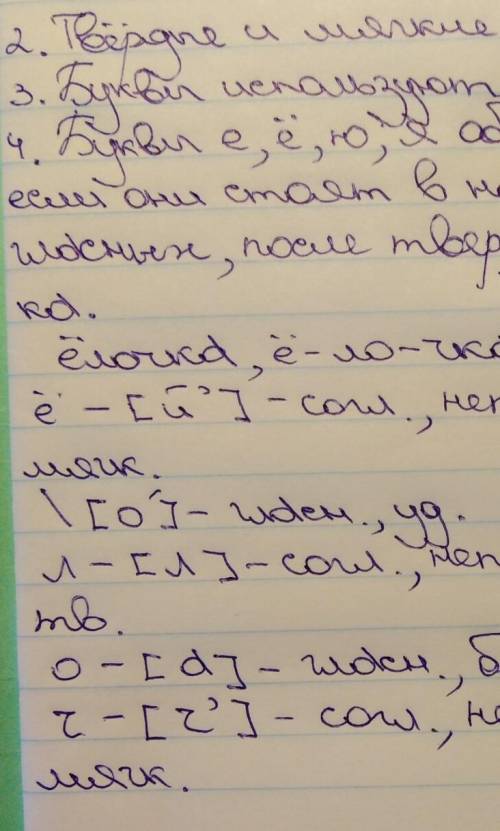 2. Твёрдые и мягкие
3. Буквы используют
4. Буквы е, ё, ю, я об
если они стоят в на
гласных, после твер
ка.
ёлочка, ё-ло-чка
ё - [й’] - согл., неп
мягк.
\ [о́] - гласн., уд.
л - [л] - согл., неп
тв.
о - [а] - гласн., б
ч - [ч’] - согл., не
мягк.